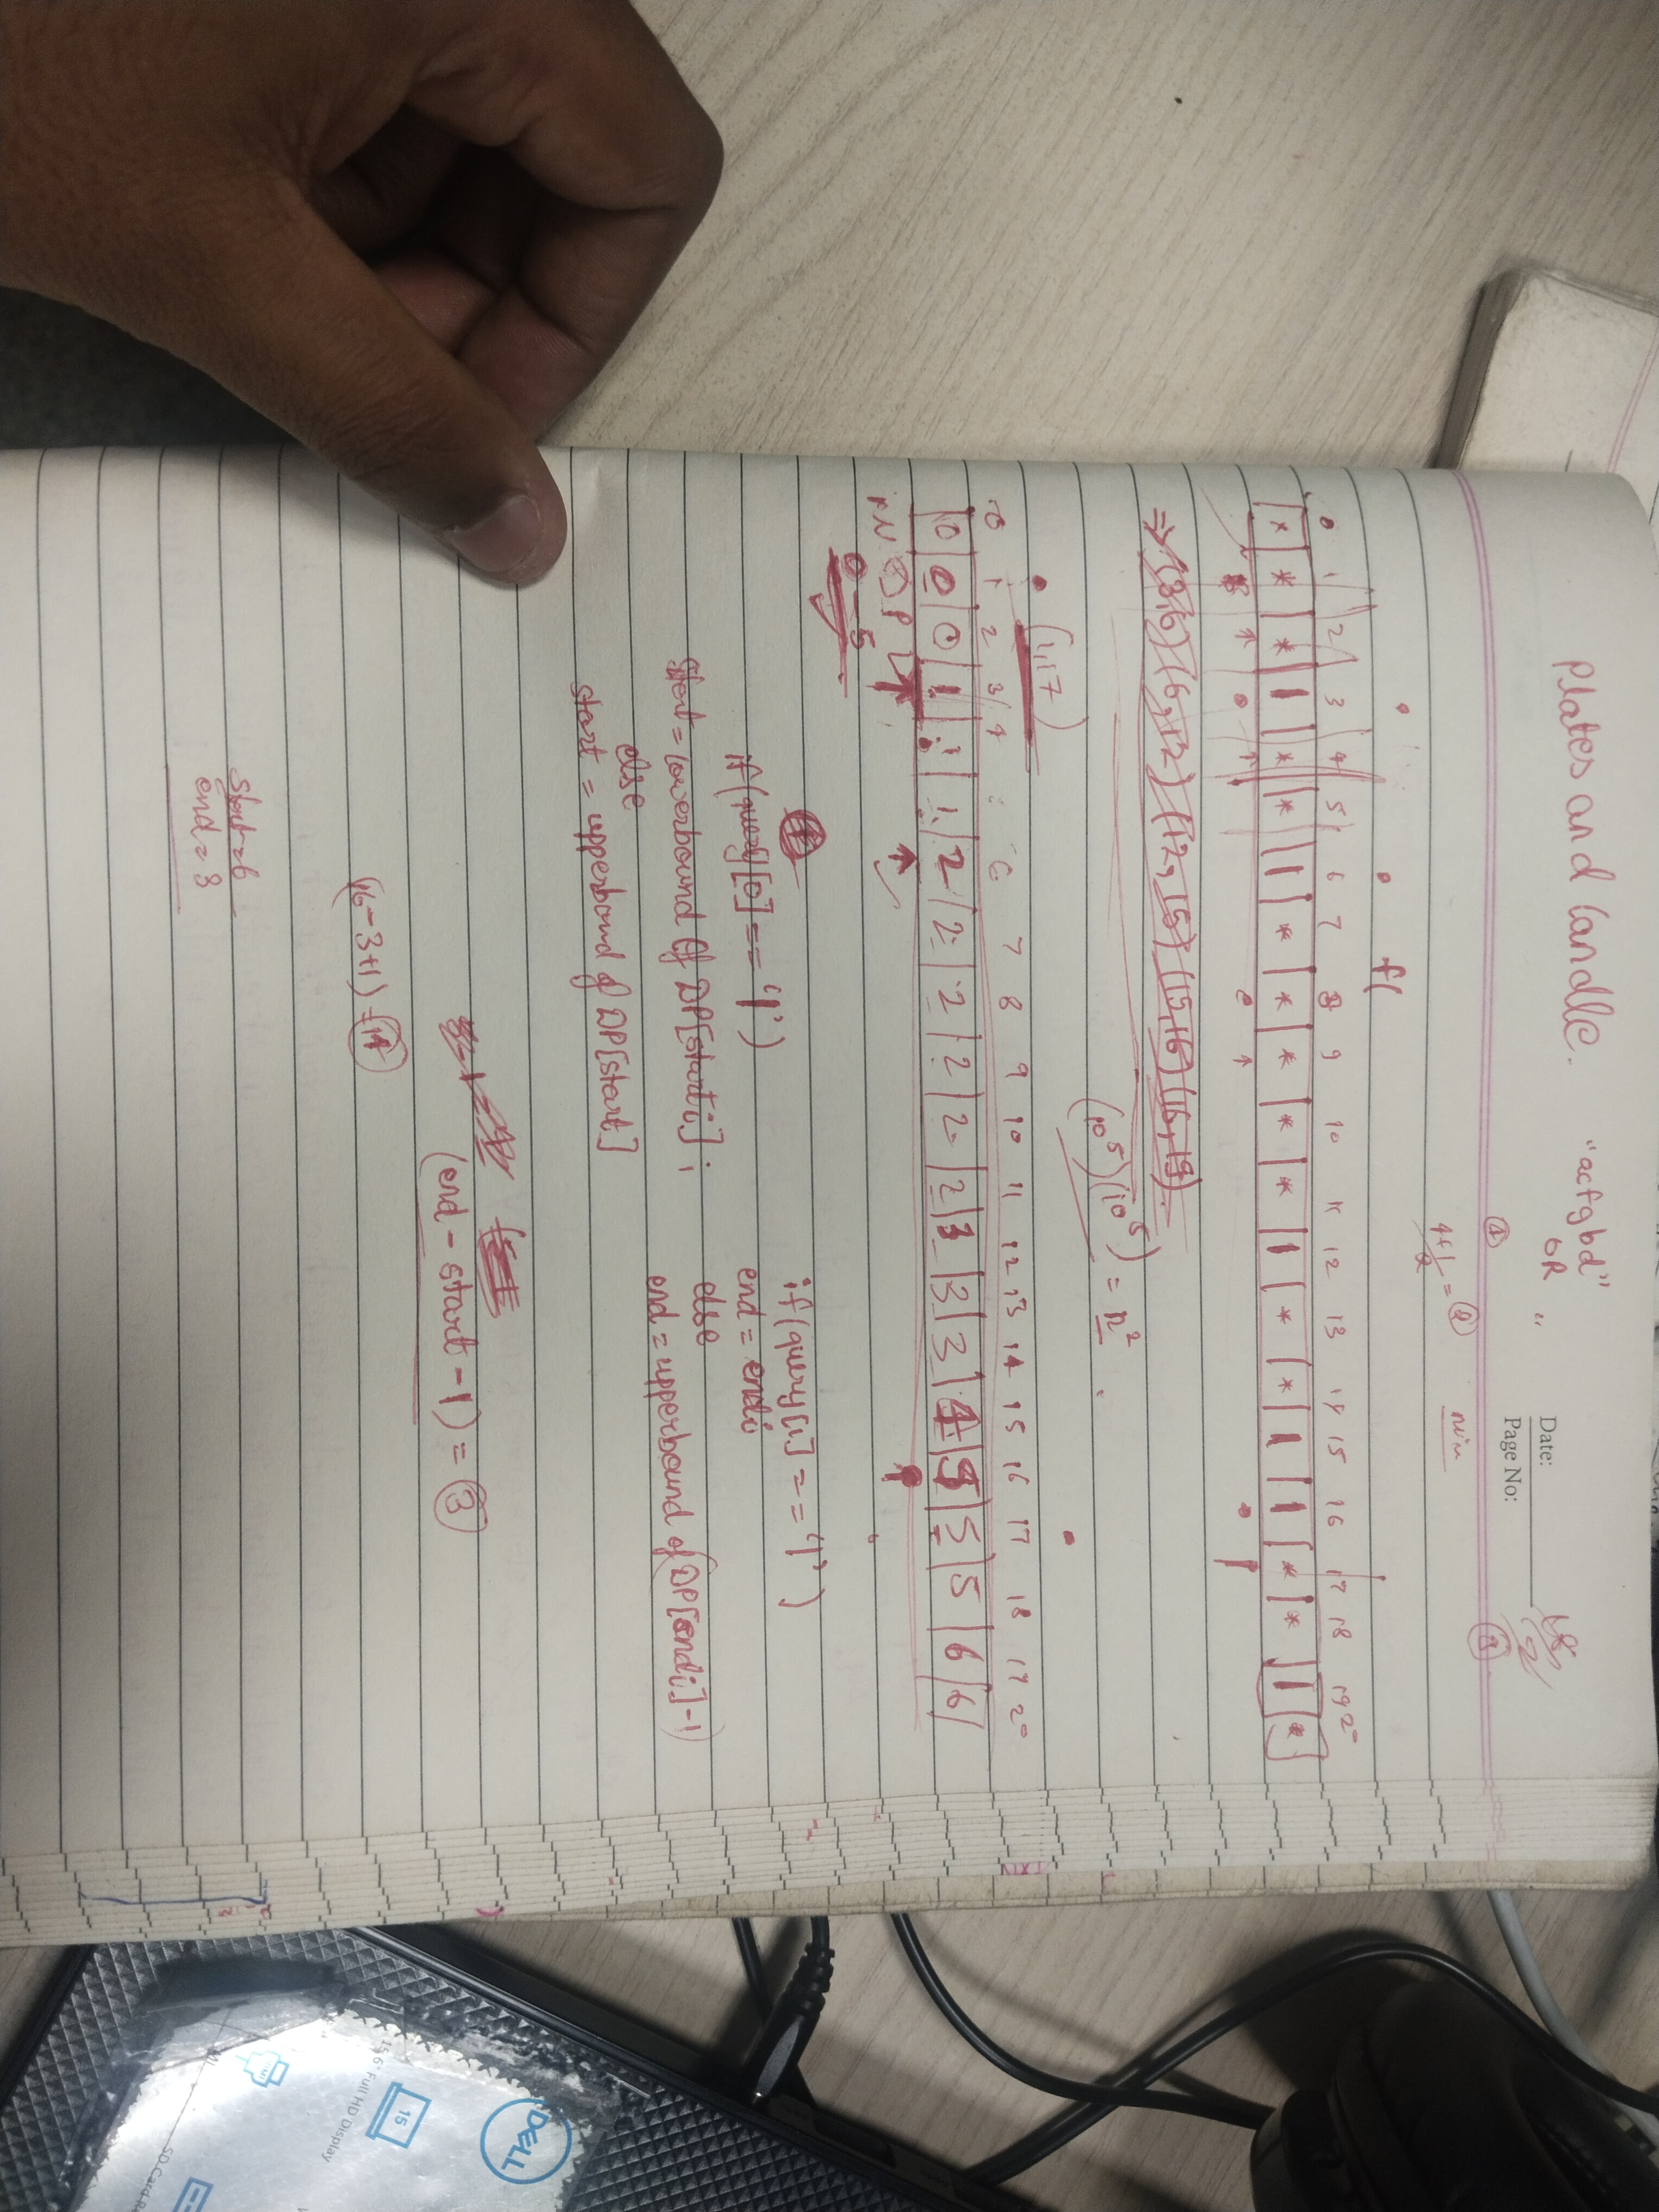 Plates and Candle.
"acfgbd"
OR "
Date:
Page No:
min
f(
0 1 2 3 4 5 6 7 8 9 10 11 12 13 14 15 16 17 18 19 20
* * * | * * | * * * * * | * * | | * * | *
=> (3,6) (6,12) (12,15) (15,16) (16,19)
(10^5)(10^5) = n²
(1,17)
0 1 2 3 4 7 8 9 10 11 12 13 14 15 16 17 18 19 20
0 0 0 1 1 1 2 2 2 2 2 2 3 3 3 4 5 5 5 6 6
0 5
if(query[0] == '|')
start = lowerbound of DP[starti];
else
start = upperbound of DP[start]
if(query[i] == '|')
end = endi
else
end = upperbound of (DP[endi]-1)
(end - start - 1) = 3
(16-3+1) = 14
start=6
end=3
DELL
15
15.6" Full HD Display